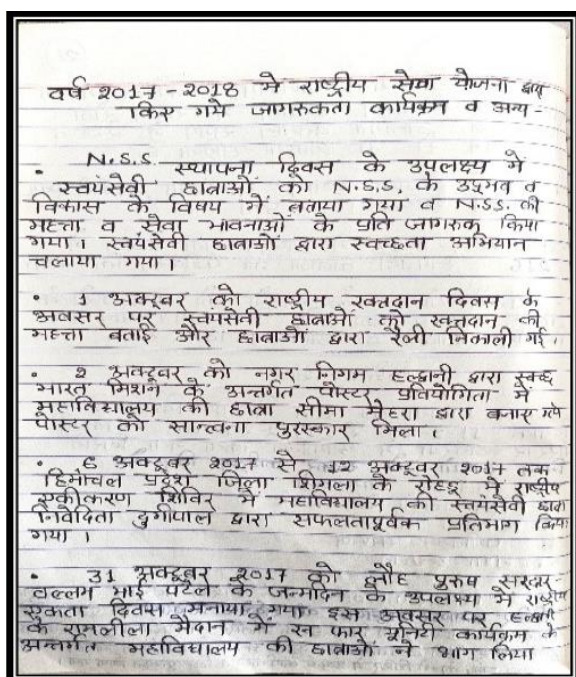 वर्ष 2017-2018 में राष्ट्रीय सेवा योजना द्वारा
किए गये जागरुकता कार्यक्रम व अन्य -
• N.S.S. स्थापना दिवस के उपलक्ष्य में
स्वयंसेवी छात्राओं को N.S.S. के उद्भव व
विकास के विषय में बताया गया व N.S.S. की
महत्ता व सेवा भावनाओं के प्रति जागरुक किया
गया। स्वयंसेवी छात्राओं द्वारा स्वच्छता अभियान
चलाया गया।
• 1 अक्टूबर को राष्ट्रीय रक्तदान दिवस के
अवसर पर स्वयंसेवी छात्राओं को रक्तदान की
महत्ता बताई और छात्राओं द्वारा रैली निकाली गई।
• 2 अक्टूबर को नगर निगम हल्द्वानी द्वारा स्वच्छ
भारत मिशन के अन्तर्गत पोस्टर प्रतियोगिता में
महाविद्यालय की छात्रा सीमा मेहरा द्वारा बनाए गये
पोस्टर को सान्त्वना पुरस्कार मिला।
• 6 अक्टूबर 2017 से 12 अक्टूबर 2017 तक
हिमांचल प्रदेश जिला शिमला के रोहडू में राष्ट्रीय
एकीकरण शिविर में महाविद्यालय की स्वयंसेवी छात्रा
निवेदिता दुर्गापाल द्वारा सफलतापूर्वक प्रतिभाग किया
गया।
• 31 अक्टूबर 2017 को लौह पुरुष सरदार
वल्लभ भाई पटेल के जन्मदिन के उपलक्ष्य में राष्ट्रीय
एकता दिवस मनाया गया इस अवसर पर हल्द्वानी
के रामलीला मैदान में रन फार यूनिटी कार्यक्रम के
अन्तर्गत महाविद्यालय की छात्राओं ने भाग लिया